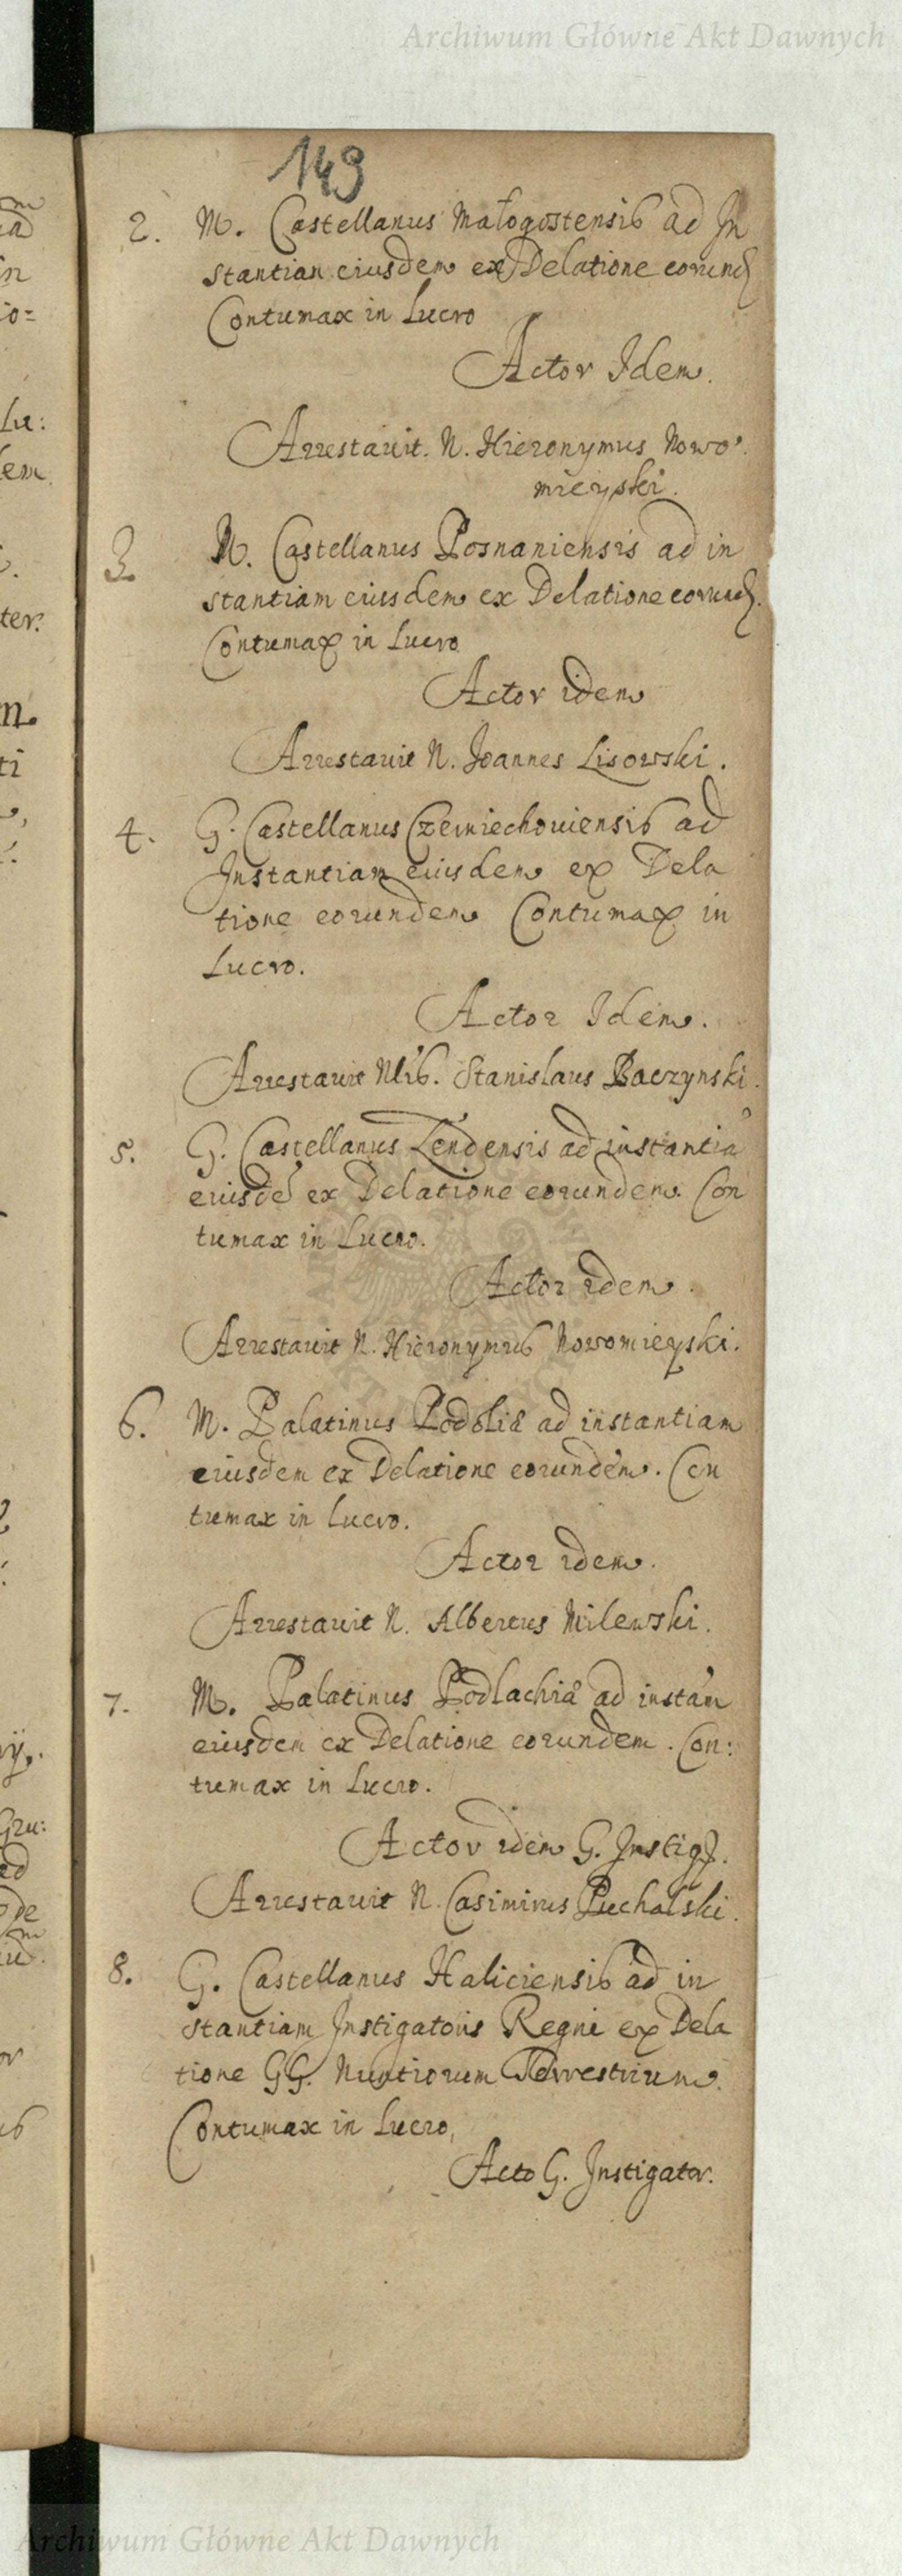 Archiwum Główne Akt Dawnych
149
2. M. Castellanus Małogostensis ad In
stantian eiusdem ex Delatione eorund
Contumax in Lucro
Actor Idem.
Arrestavit. N. Hieronymus Nowo
mieyski.
3. M. Castellanus Posnaniensis ad in
stantiam eiusdem ex Delatione eorund.
Contumax in Lucro
Actor idem
Arrestavit N. Joannes Lisowski.
4. G. Castellanus Czerniechoviensis ad
Instantiam eiusdem ex Dela
tione eorundem Contumax in
Lucro.
Actor Idem.
Arrestavit Nlis. Stanislaus Baczynski.
5. G. Castellanus Lendensis ad instantiã
eiusdẽ ex Delatione eorundem. Con
tumax in Lucro.
Actor idem.
Arrestavit N. Hieronymus Nowomieyski.
6. M. Palatinus Podoliæ ad instantiam
eiusdem ex Delatione eorundem. Con
tumax in Lucro.
Actor idem.
Arrestavit N. Albertus Milewski.
7. M. Palatinus Podlachiæ ad instãn
eiusdem ex Delatione eorundem. Con:
tumax in Lucro.
Actor idem G. Instig.
Arrestavit N. Casimirus Puchalski.
8. G. Castellanus Haliciensis ad in
stantiam Instigatoris Regni ex Dela
tione GG. Nuntiorum Terrestrium.
Contumax in Lucro,
Acto G. Instigator.
Archiwum Główne Akt Dawnych